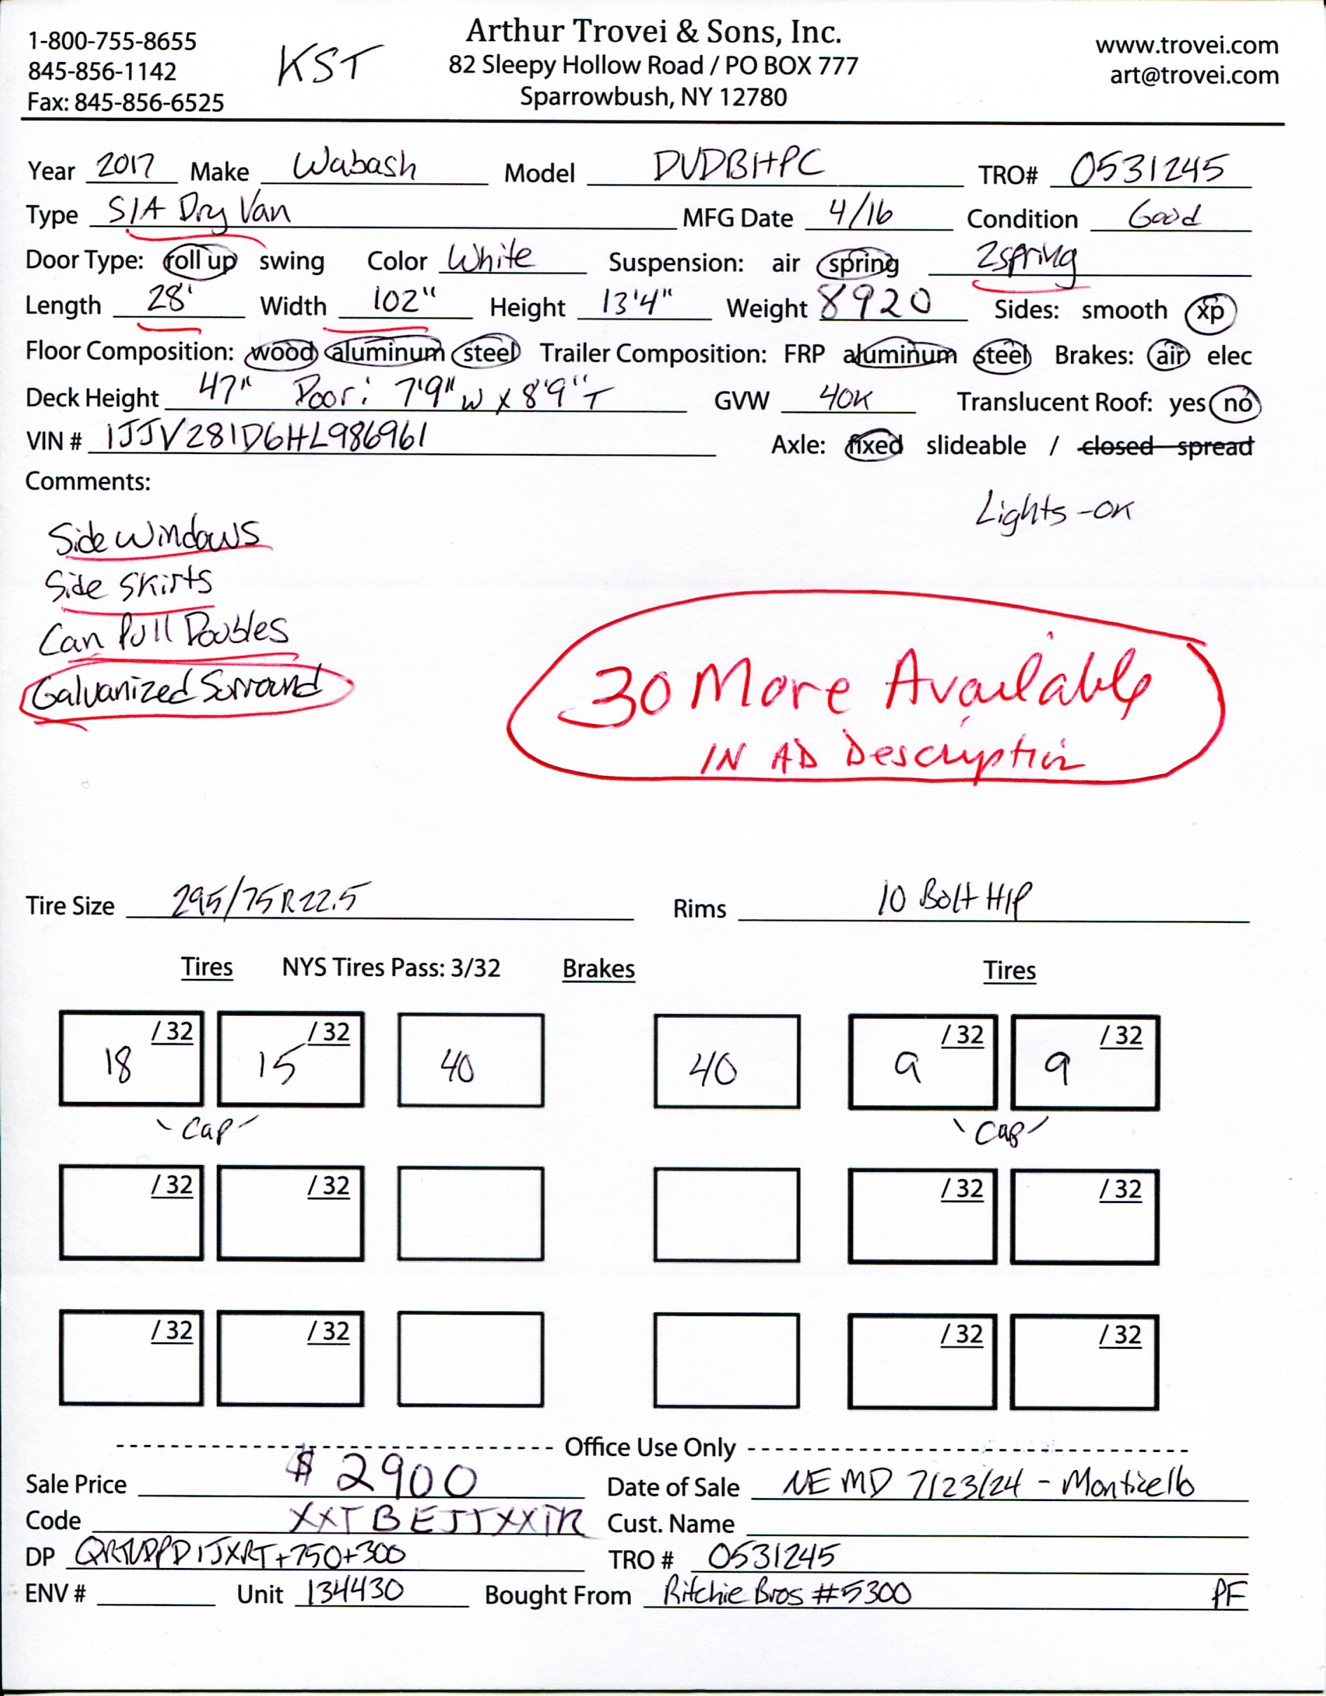 1-800-755-8655
845-856-1142
Fax: 845-856-6525
KST
Arthur Trovei & Sons, Inc.
82 Sleepy Hollow Road / PO BOX 777
Sparrowbush, NY 12780
www.trovei.com
art@trovei.com
Year 2017 Make Wabash Model DVDBHPC TRO# 0531245
Type S/A Dry Van MFG Date 4/16 Condition Good
Door Type: roll up swing Color White Suspension: air spring 2spring
Length 28' Width 102" Height 13'4" Weight 8920 Sides: smooth xp
Floor Composition: wood aluminum steel Trailer Composition: FRP aluminum steel Brakes: air elec
Deck Height 47" Door: 7'9"W x 8'9"T GVW 40K Translucent Roof: yes no
VIN # 1JJV281D6HL986961 Axle: fixed slideable / closed spread
Comments:
Lights-OK
Side Windows
Side Skirts
Can Pull Doubles
Galvanized Surround
30 More Available
IN AD Description
Tire Size 295/75R22.5 Rims 10 Bolt H/P
Tires NYS Tires Pass: 3/32 Brakes Tires
18 /32 15 /32 40 40 9 /32 9 /32
Cap Cap
/32 /32 /32 /32
/32 /32 /32 /32
Office Use Only
Sale Price $2900 Date of Sale NEMD 7/23/24 - Monticello
Code XXTBEJTXXIR Cust. Name
DP +750+300 TRO # 0531245
ENV # Unit 134430 Bought From Ritchie Bros #5300 PF